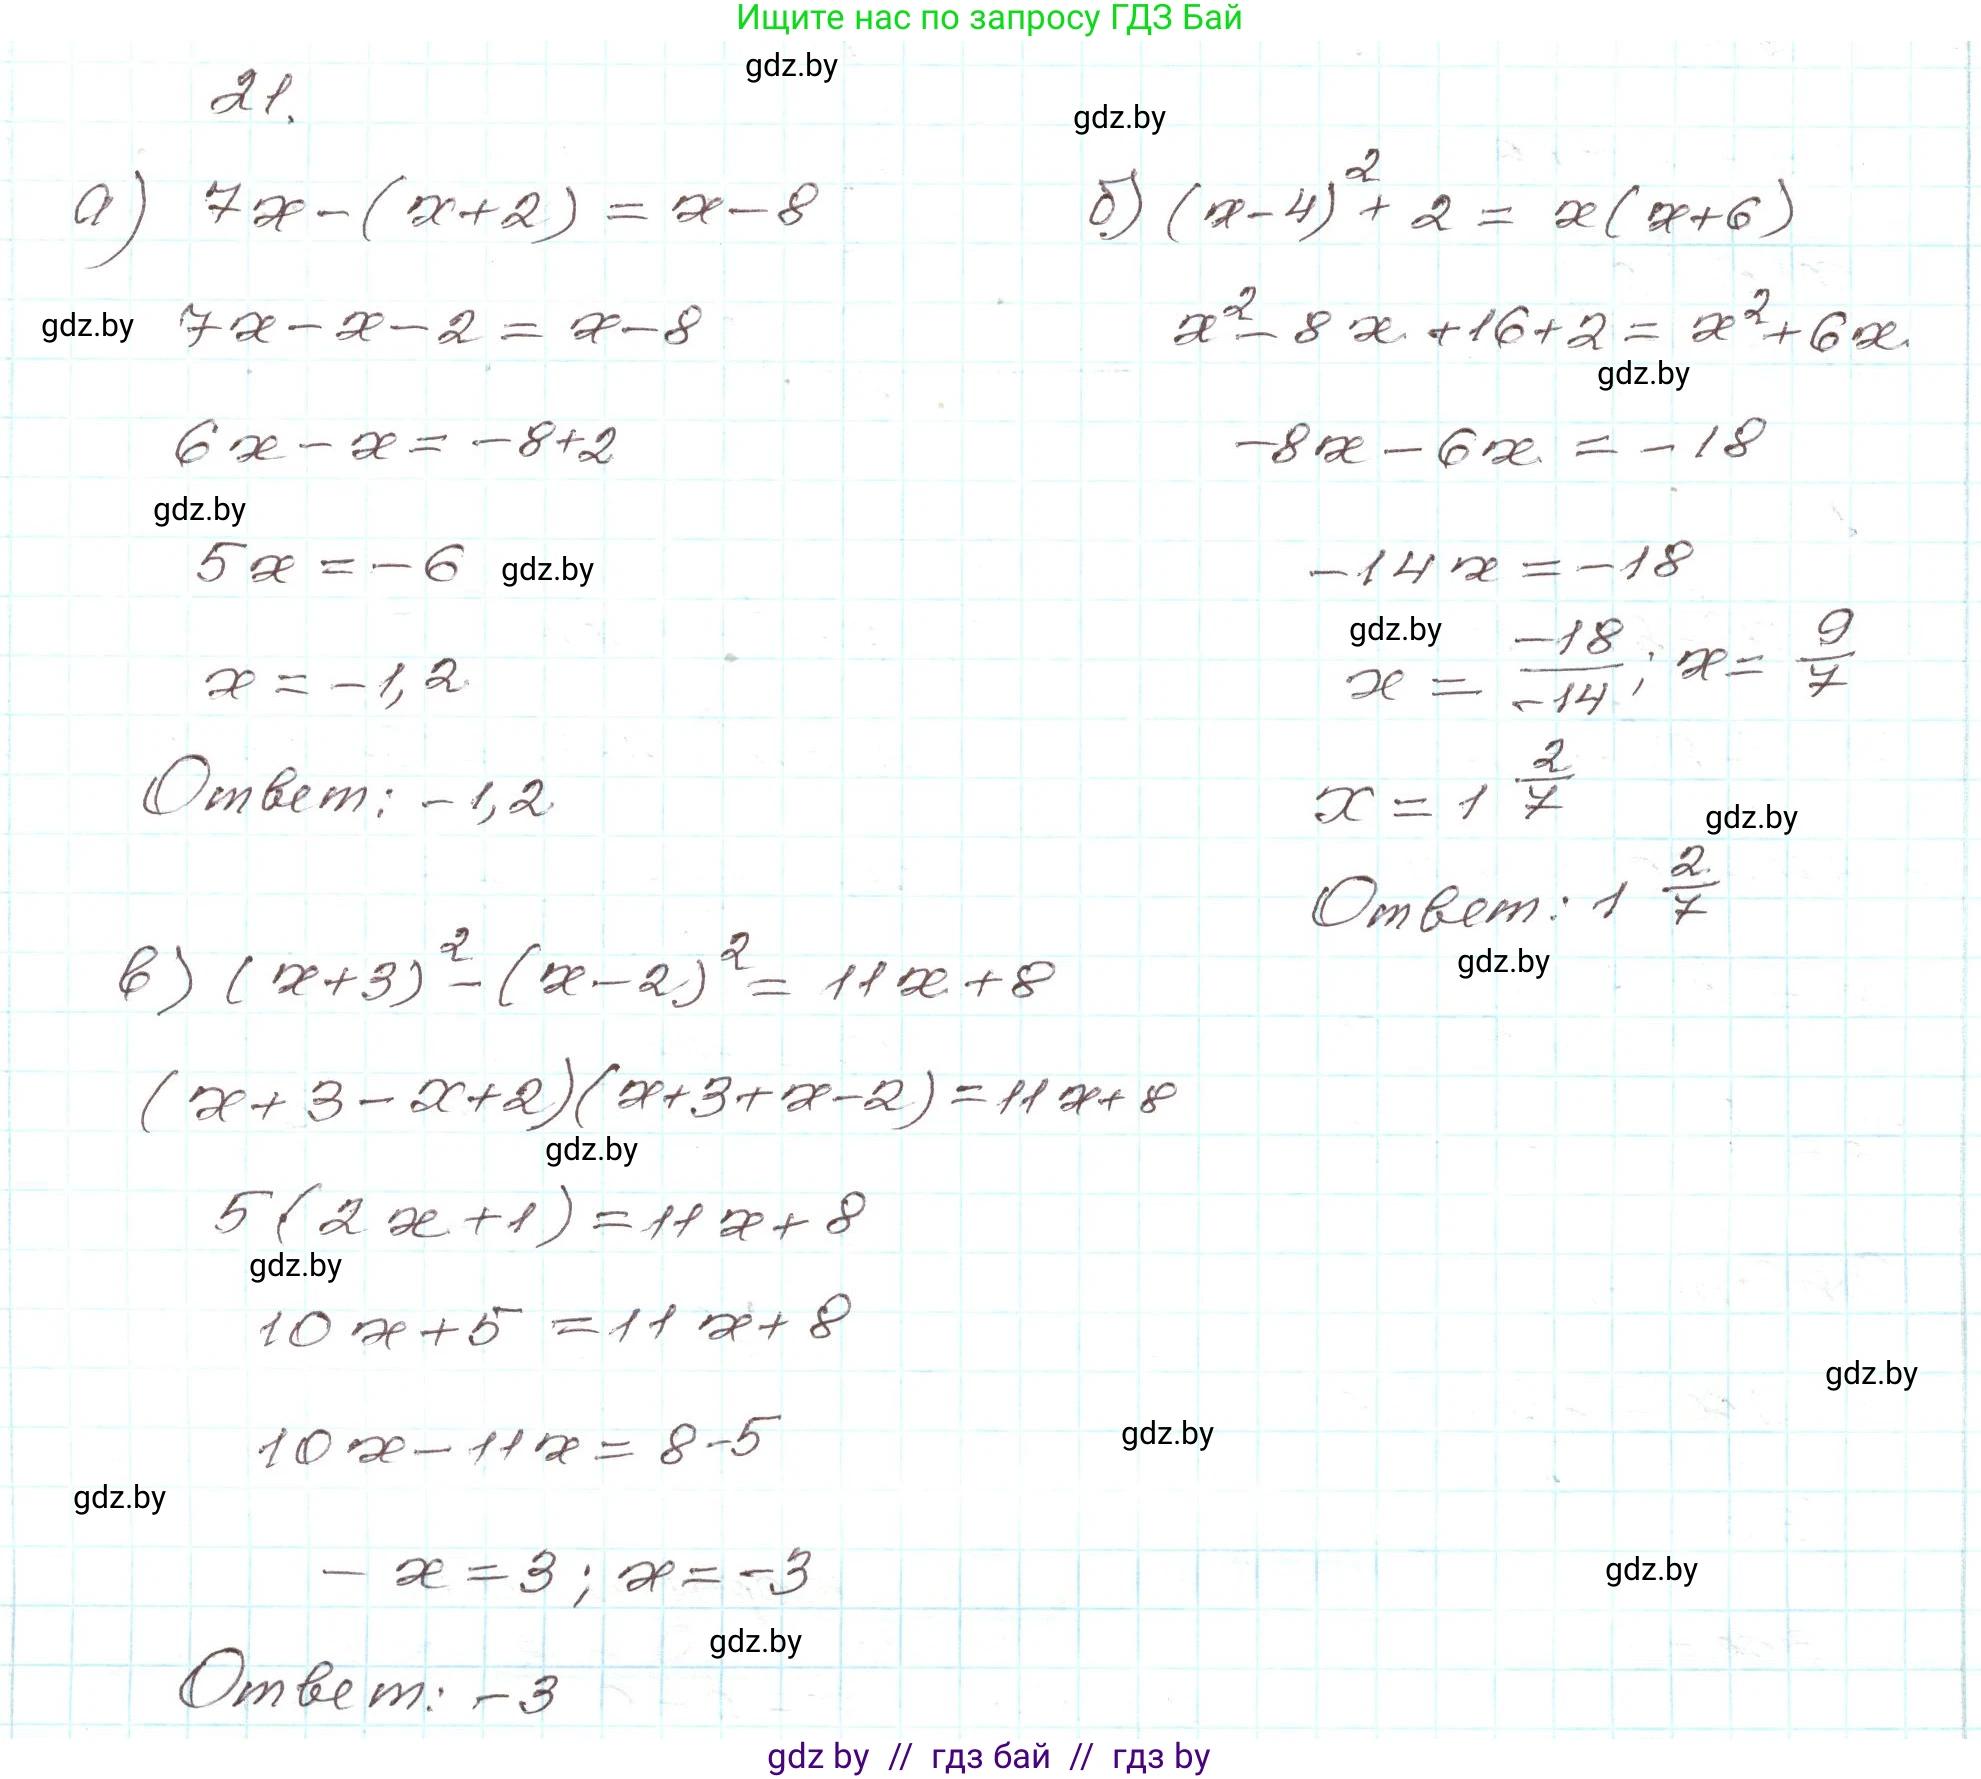 Ищите нас по запросу ГДЗ Бай
gdz.by
21.
gdz.by
а) 7x-(x+2)=x-8
gdz.by 7x-x-2=x-8
6x-x=-8+2
gdz.by
5x=-6 gdz.by
x=-1,2
Ответ: -1,2
б) (x-4)²+2=x(x+6)
x²-8x+16+2=x²+6x
gdz.by
-8x-6x=-18
-14x=-18
gdz.by
x=-18/-14; x=9/7
x=1 2/7
gdz.by
Ответ: 1 2/7
gdz.by
в) (x+3)²-(x-2)²=11x+8
(x+3-x+2)(x+3+x-2)=11x+8
gdz.by
5(2x+1)=11x+8
gdz.by
10x+5=11x+8
gdz.by
10x-11x=8-5
gdz.by
gdz.by
-x=3; x=-3
gdz.by
gdz.by
Ответ: -3
gdz by // гдз бай // гдз by